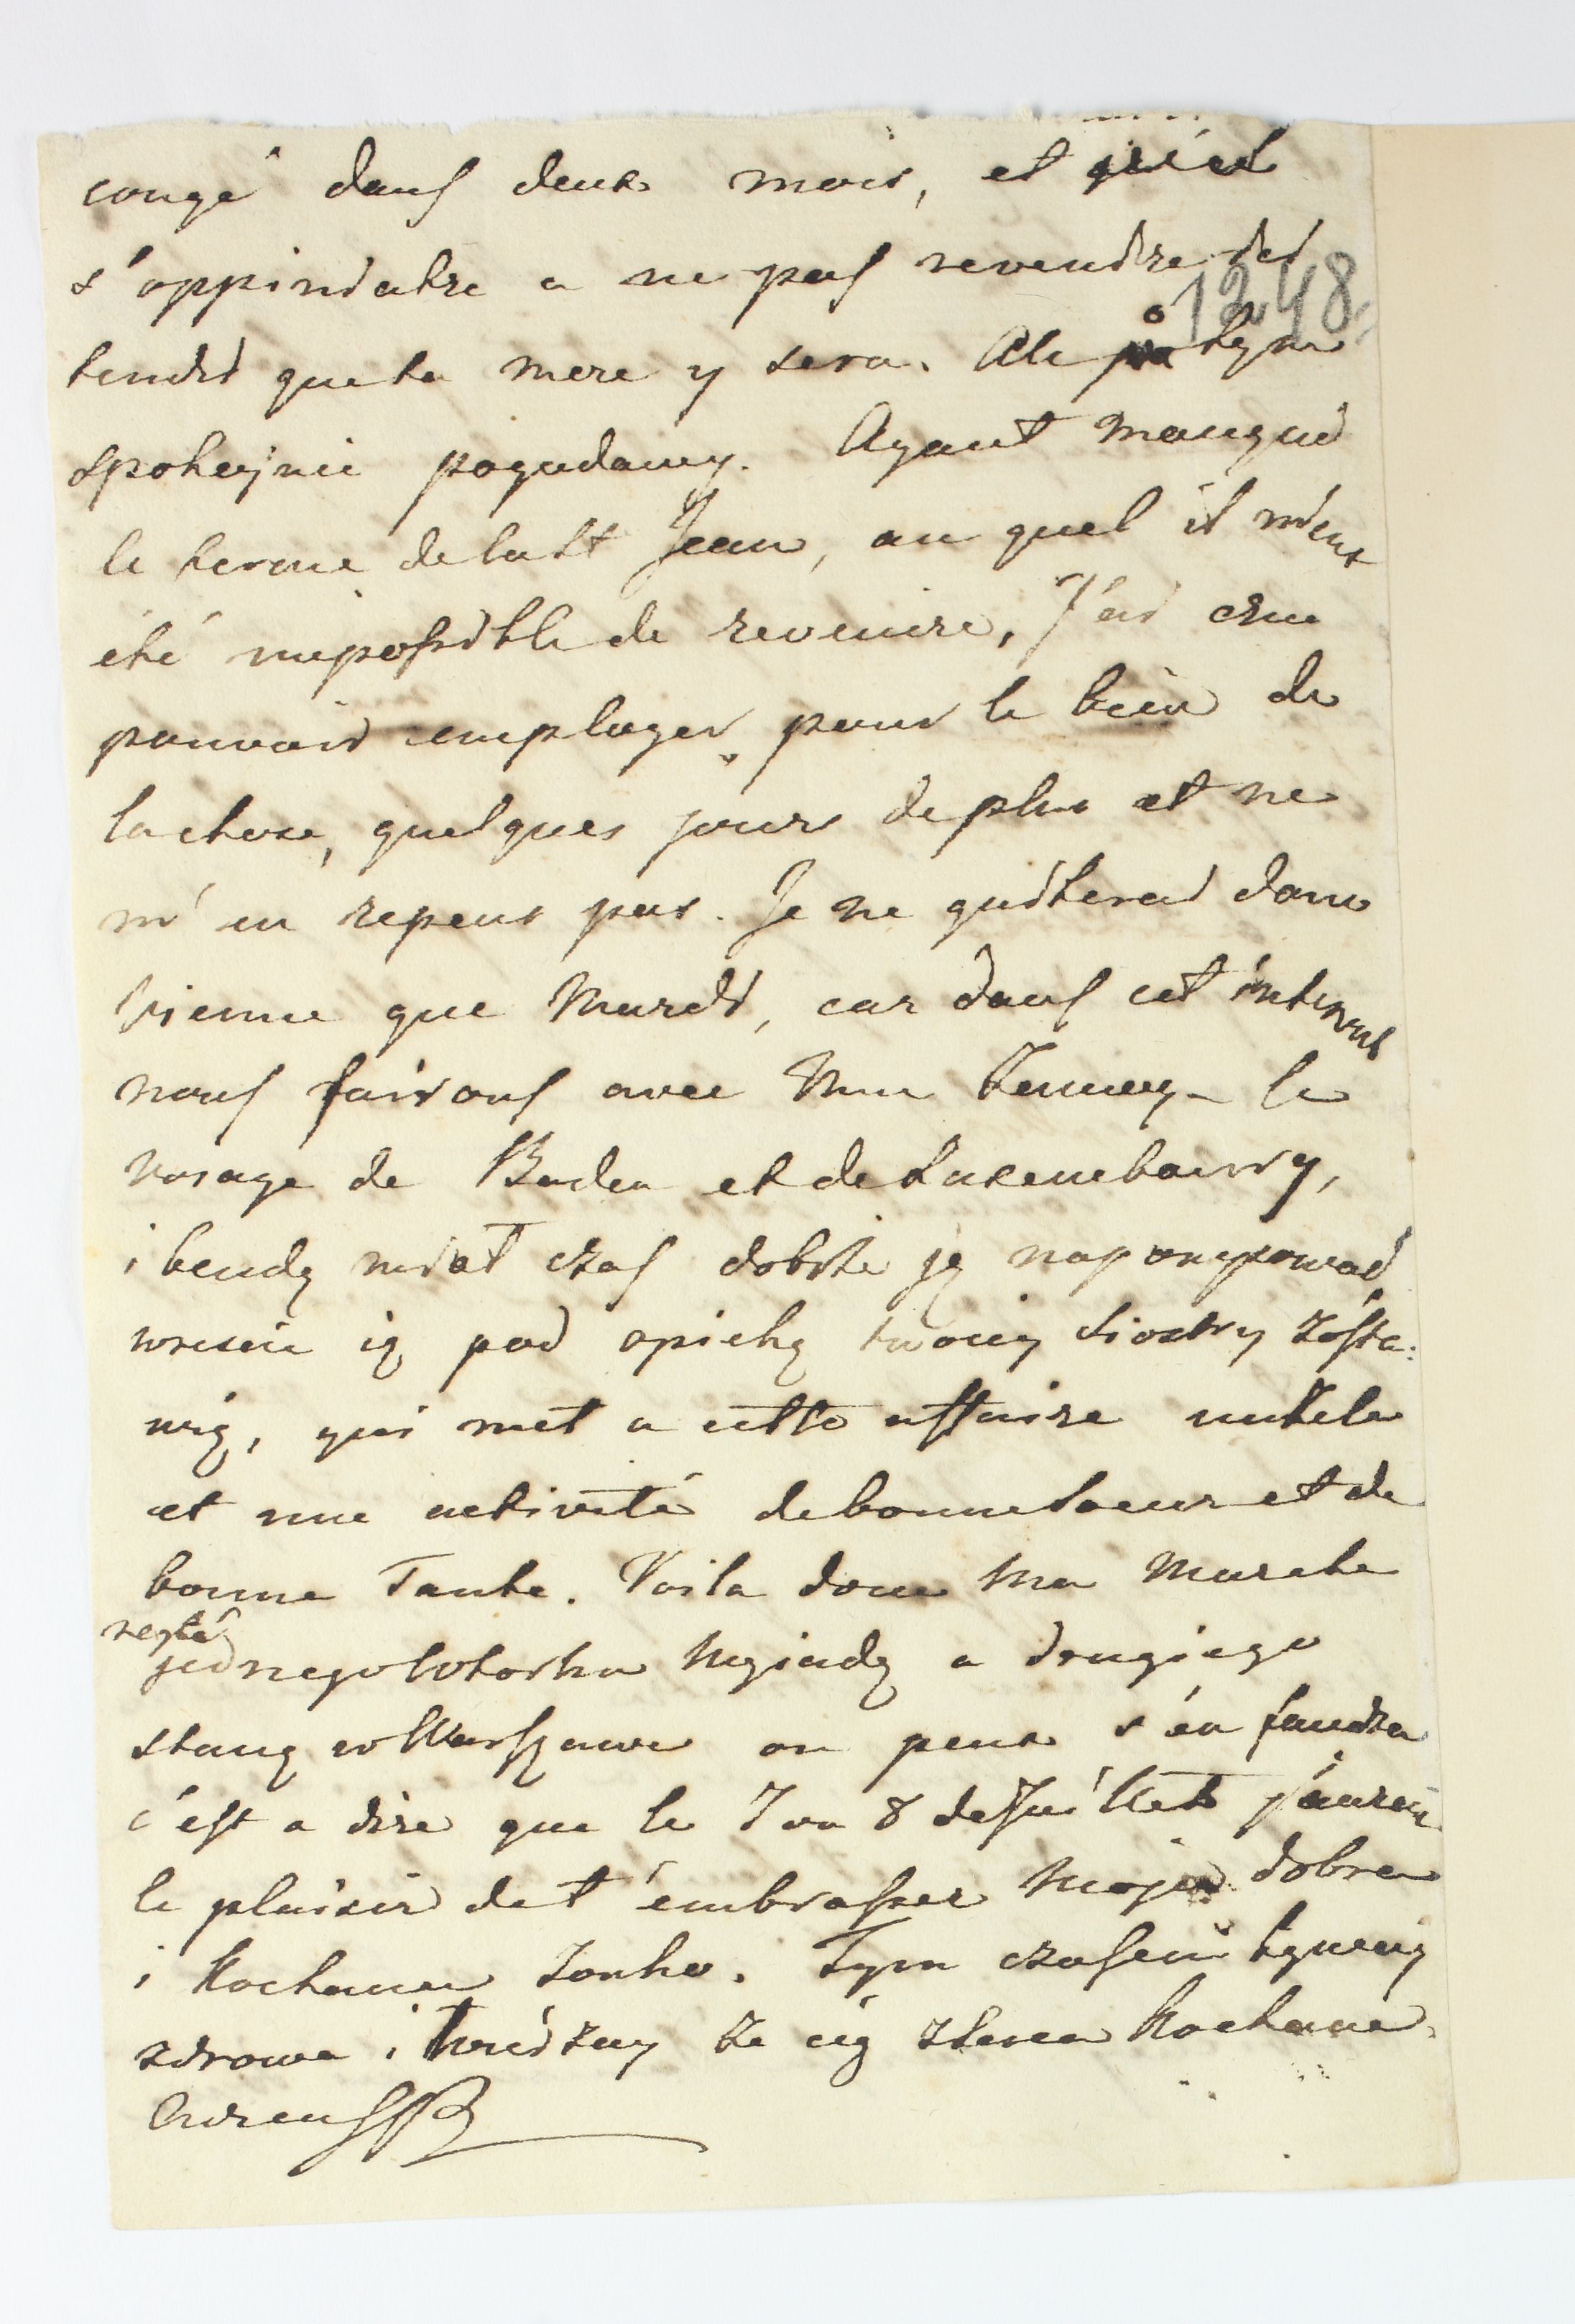 congé dans deux mois, et qu'il
s'oppiniatre a ne pas revendre
1248
tendis que ta mere y sera. Ale po tym
spokojnie pogadamy. Ayant manqué
le terme de la St Jean, au quel il m'eut
été impossible de revenire, J'ai crue
pouvoir employer pour le bien de
la chose, quelques jours de plus et ne
m'en repens pas. Je ne quiterai donc
Vienne que Mardi, car dans cet interval
nous fairons avec Mme le
voiage de Baden et de Luxembourg,
i bendę miał czas dobrze ję naponpować
wrescie ię pod opiekę twoiey siostry zosta:
wię, qui met a cette affaire un zele
et une activité de bonne soeur et de
bonne Tante. Voila donc ma marche
jednego Wtorku wyiadę a drugiego
stanę w Warszawie ou peu s'en faudra
c'est a dire que le 7 ou 8 de Juillet j'aurai
le plaisir de t'embrasser moja dobra
i kochana Zonko. Tym czasem bywaj
zdrowa i wierzay ze cię zserca kocham.